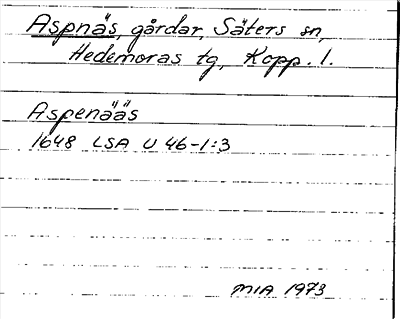 Aspnäs, gårdar, Säters sn,
Hedemoras tg, Kopp. l.
Aspenääs
1648 LSA U 46-1:3
MIA 1973